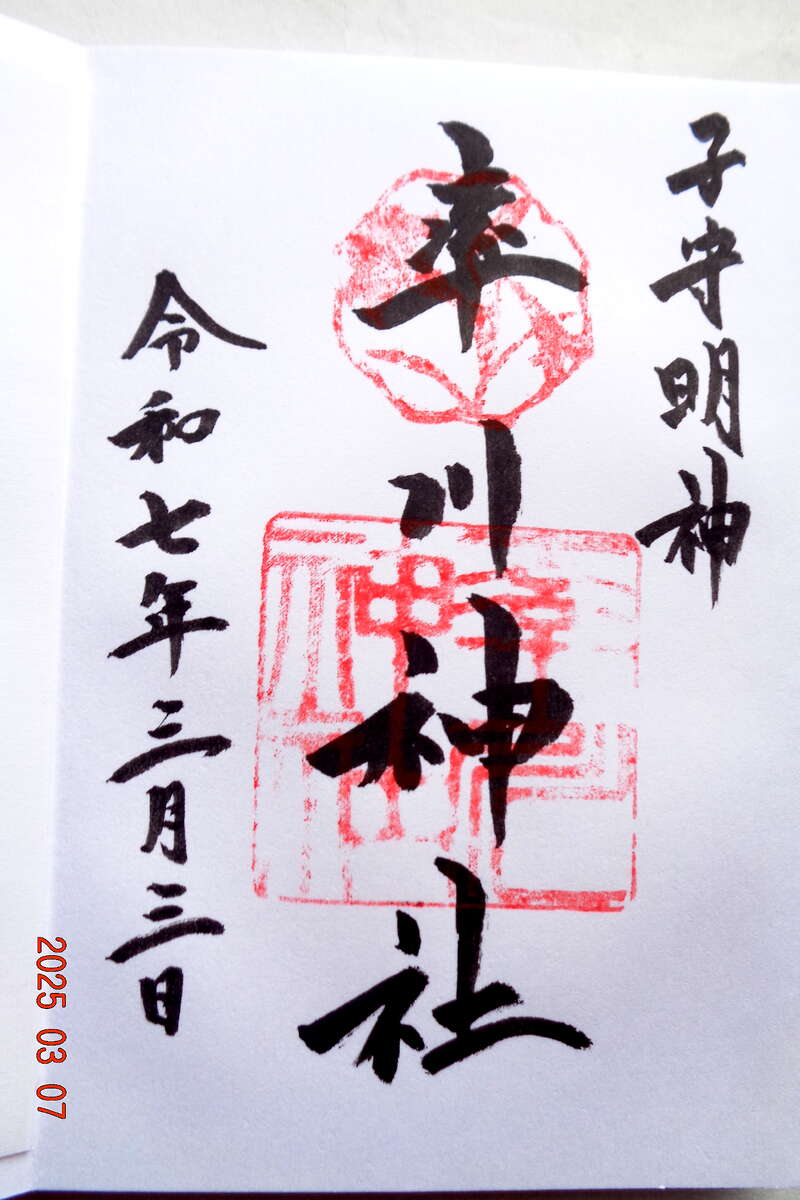 子守明神
率川神社
令和七年三月三日
2025 03 07